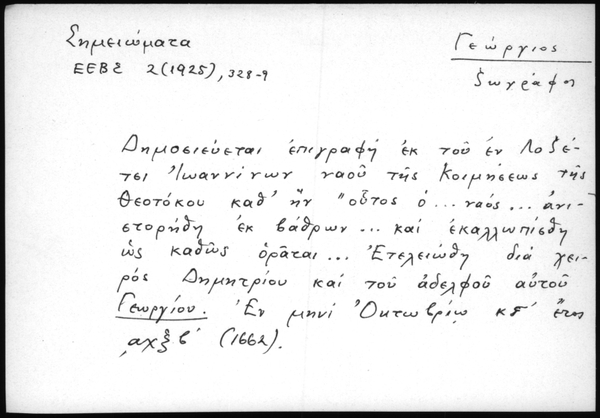 Σημειώματα
ΕΕΒΣ 2(1925), 328-9
Γεώργιος
ζωγράφος
Δημοσιεύεται ἐπιγραφή ἐκ τοῦ ἐν Λοζέ-
τσι Ἰωαννίνων ναοῦ τῆς Κοιμήσεως τῆς
Θεοτόκου καθ' ἥν "οὗτος ὁ... ναός... ἀνι-
στορήθη ἐκ βάθρων... καί ἐκαλλωπίσθη
ὡς καθὼς ὁρᾶται... Ἐτελειώθη διά χει-
ρός Δημητρίου καί τοῦ ἀδελφοῦ αὐτοῦ
Γεωργίου. Ἐν μηνί Ὀκτωβρίῳ ἔτη
͵αχξβ' (1662).